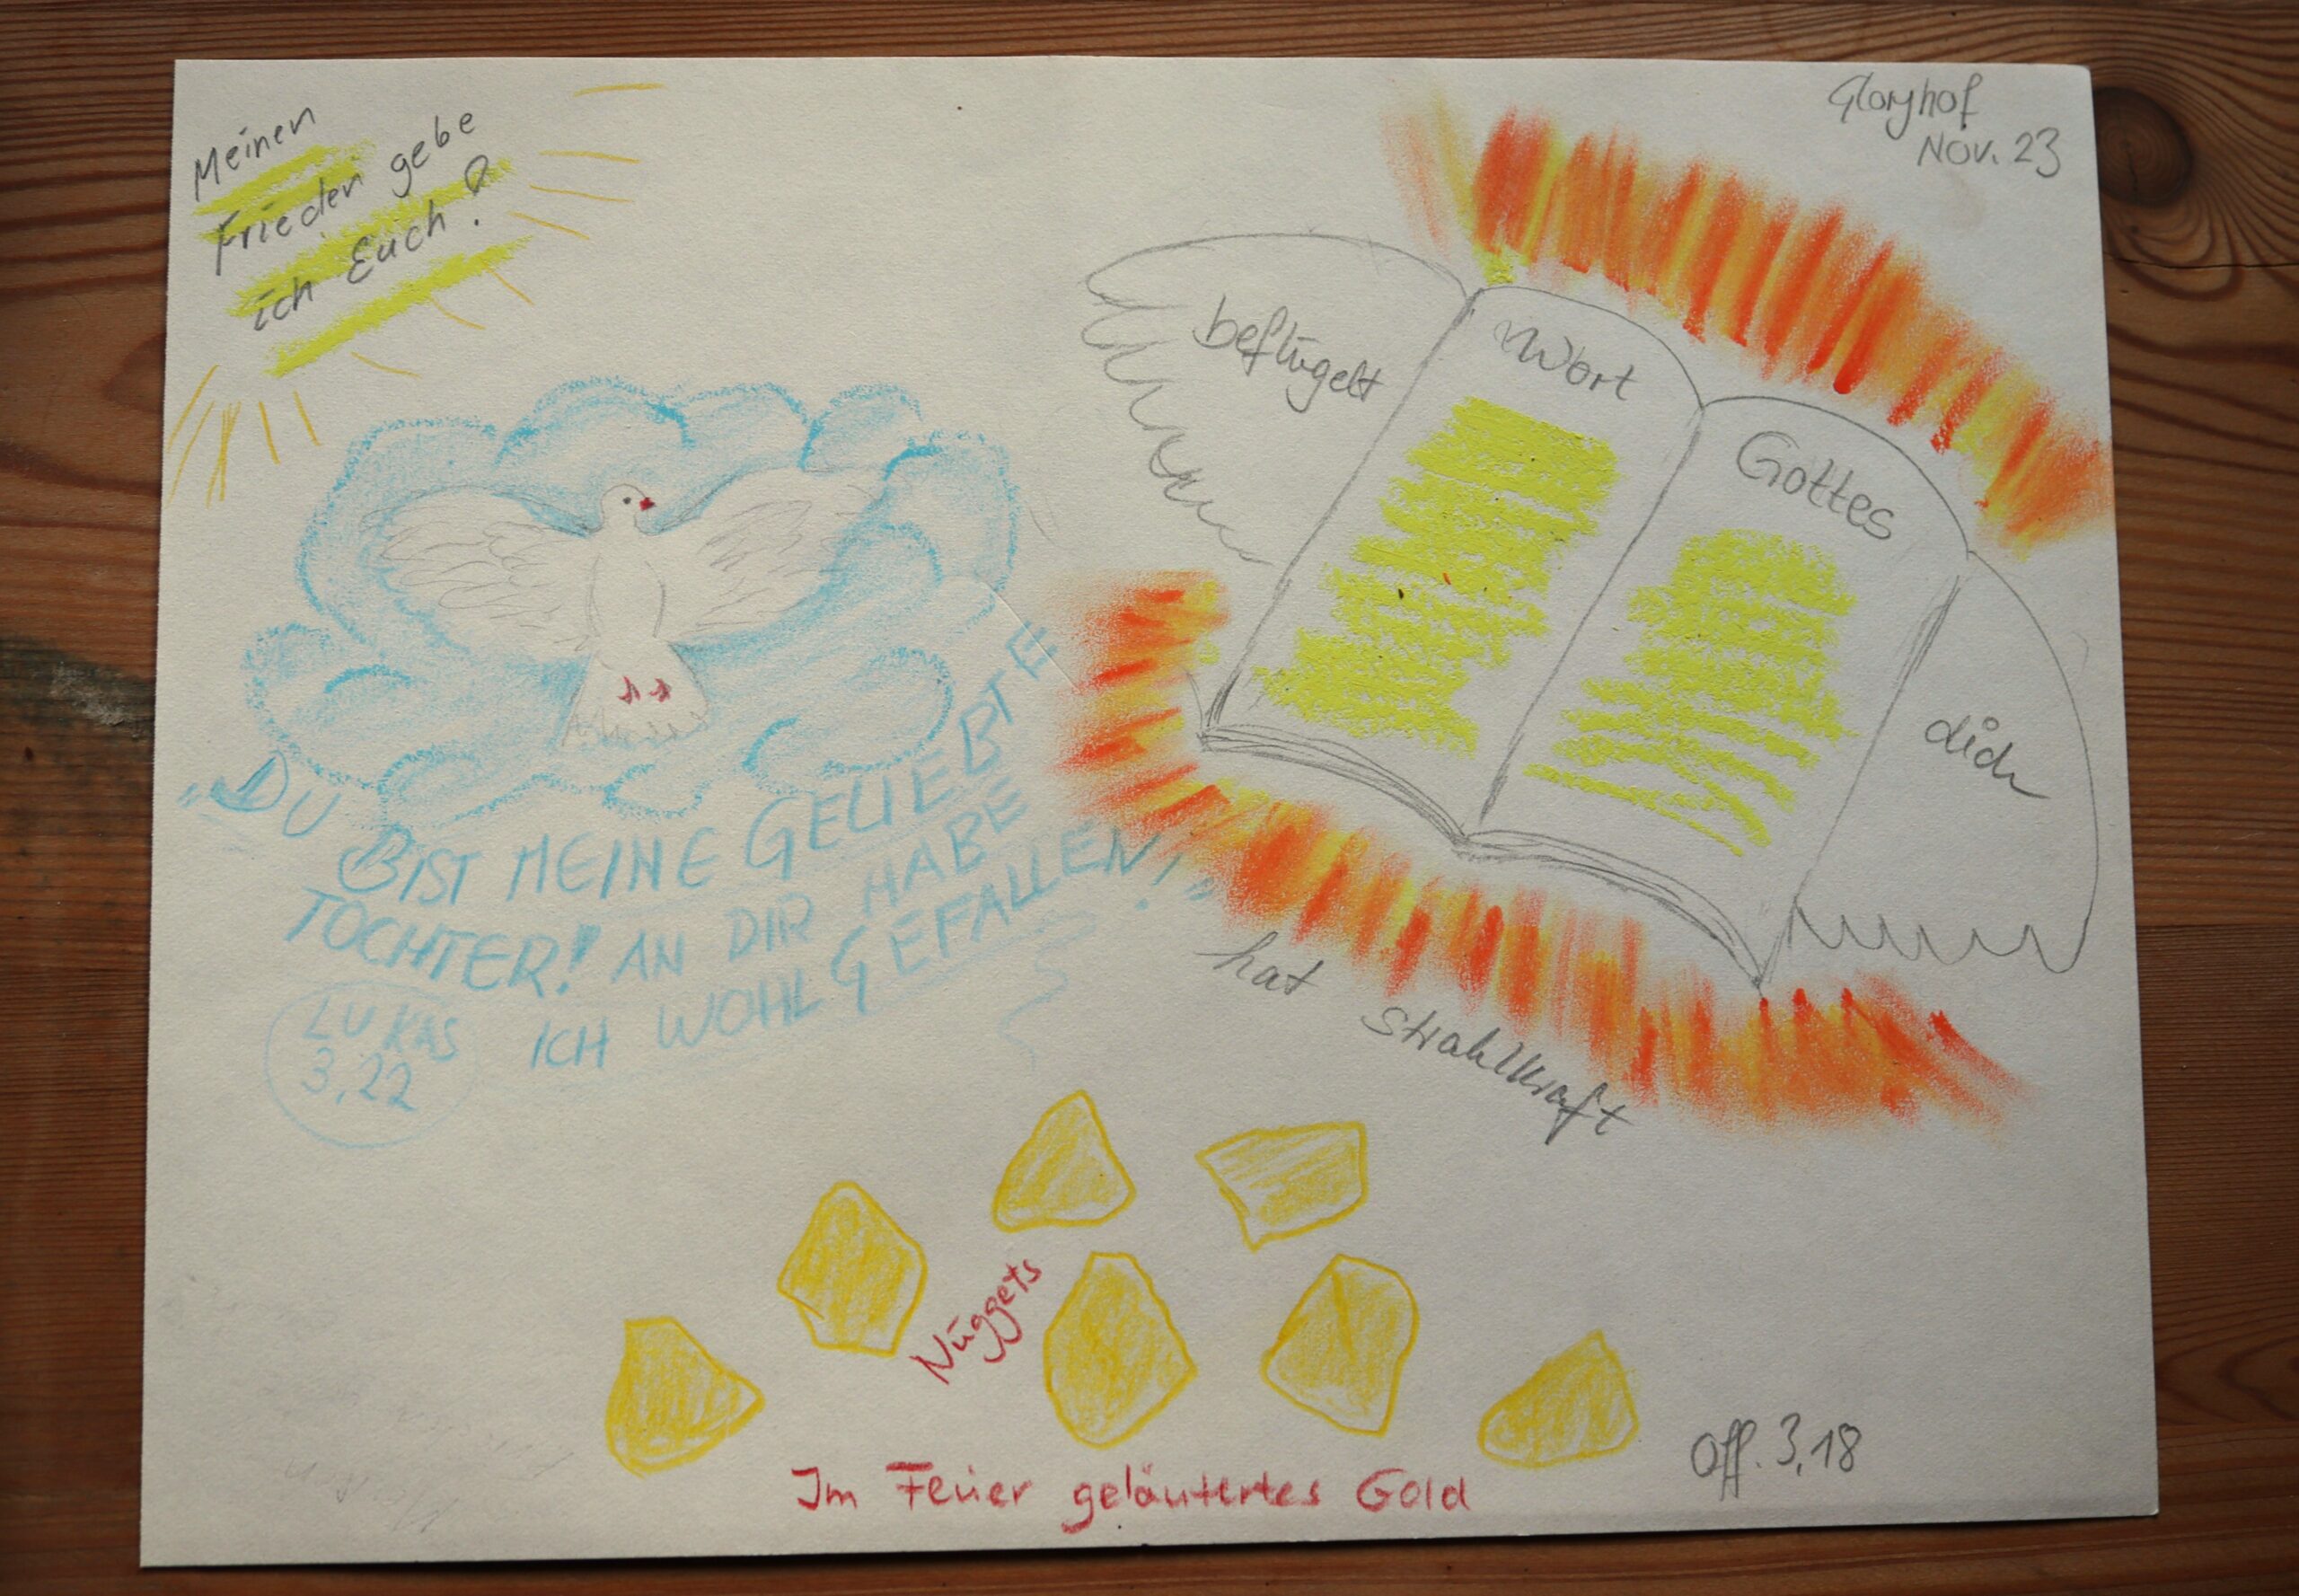 Meinen
Frieden gebe
ich Euch!
Gloryhof
Nov. 23
beflügelt
Wort
Gottes
dich
hat Strahlkraft
"DU
BIST MEINE GELIEBTE
TOCHTER! AN DIR HABE
ICH WOHLGEFALLEN!"
LUKAS
3,22
Nuggets
Im Feuer geläutertes Gold
Off. 3,18